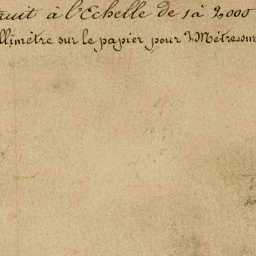 ruit à l'Echelle de 1 à 2,000
llimètre sur le papier pour 2 Mètres sur